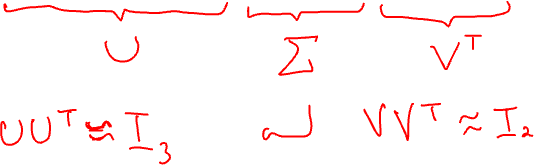 U Σ Vᵀ
UUᵀ ≈ I₃ and VVᵀ ≈ I₂